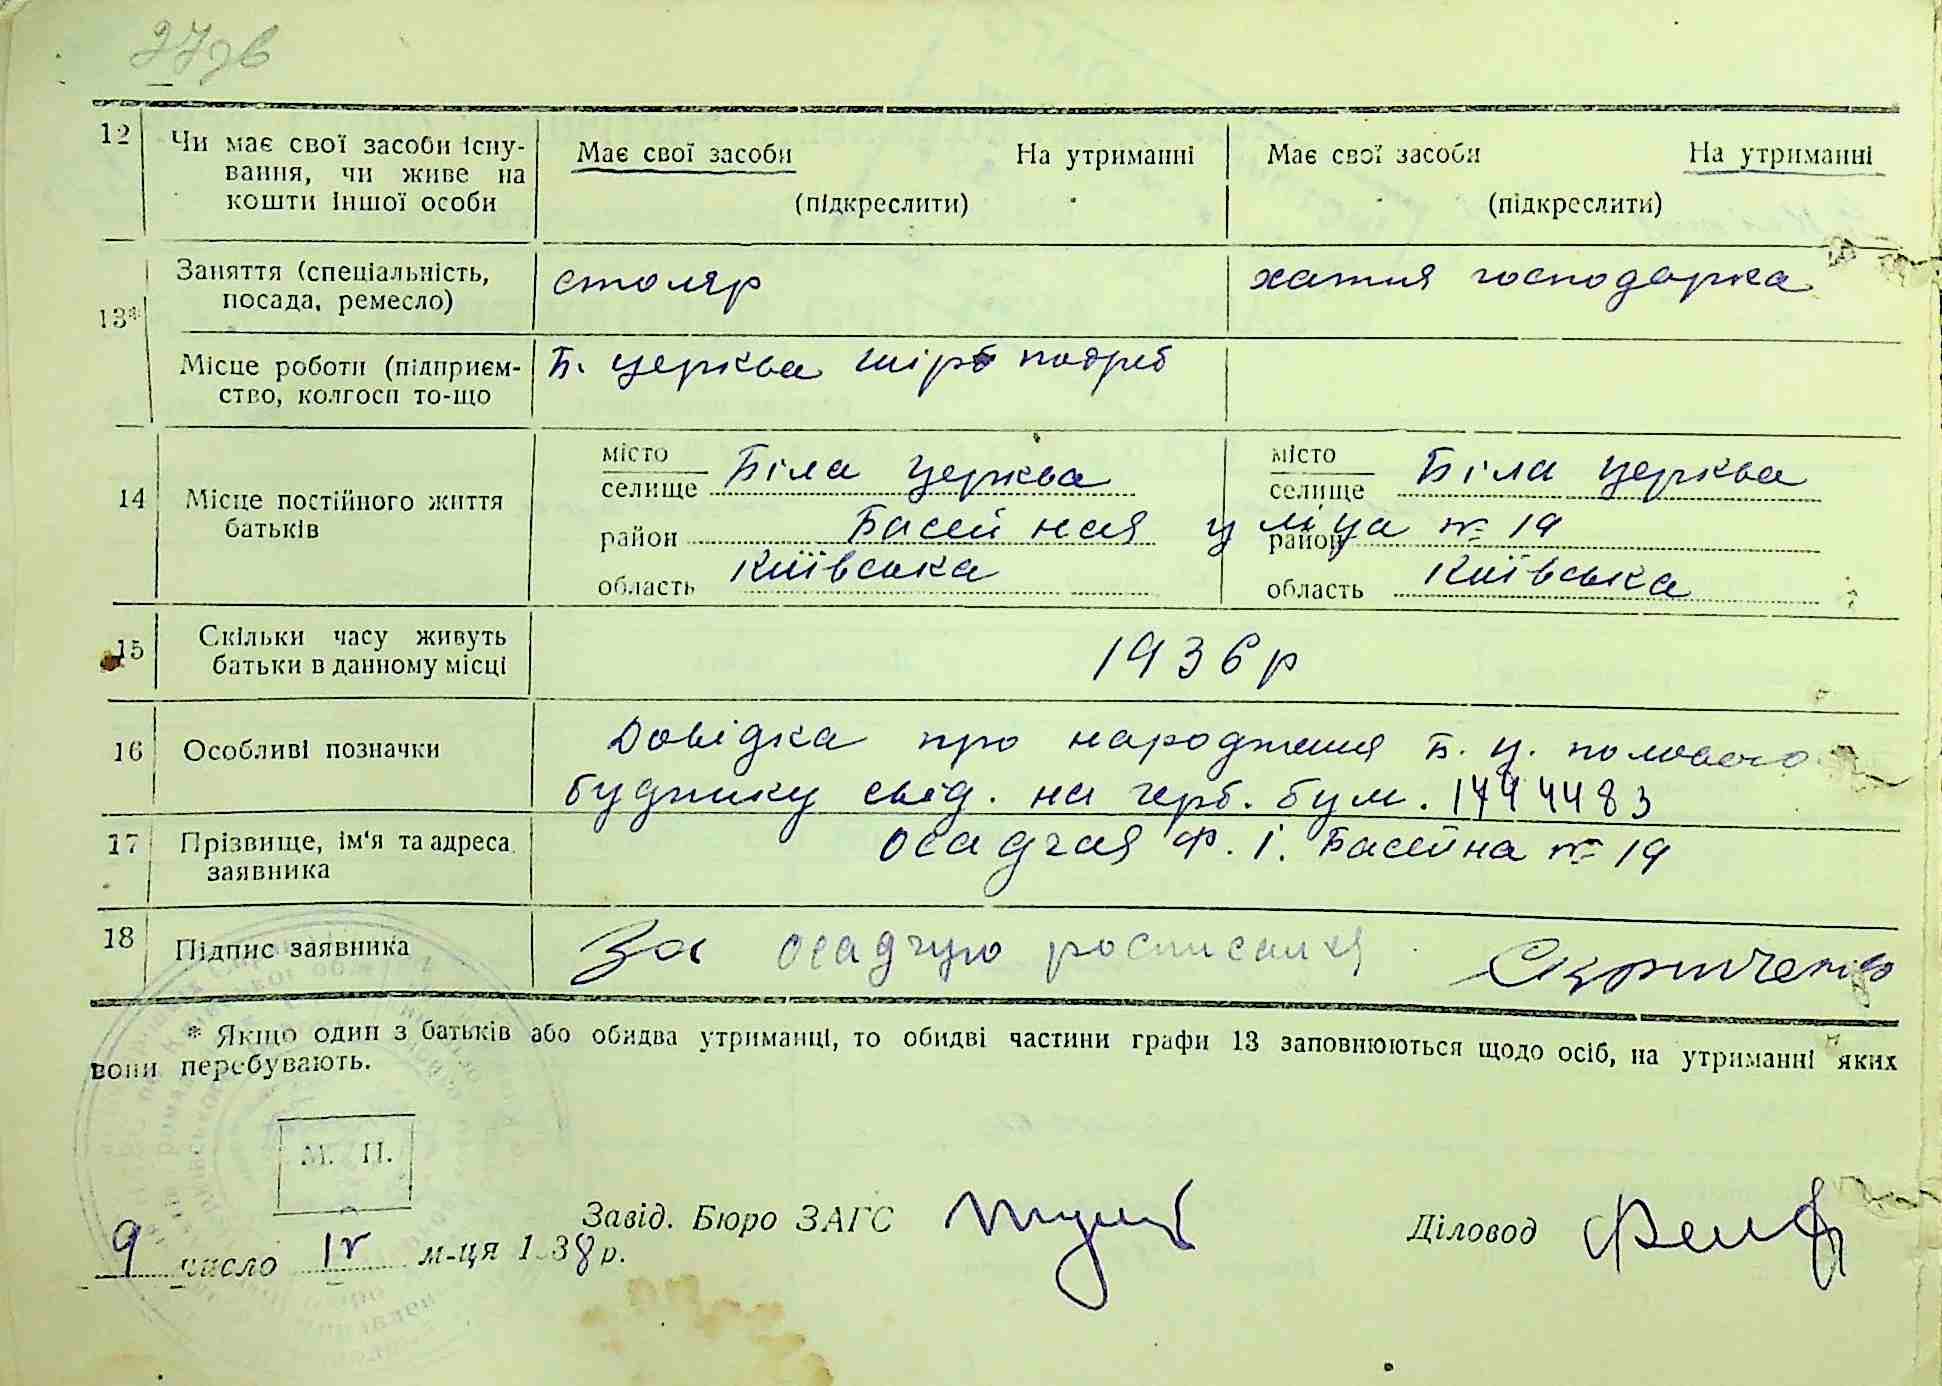 27зв
12 Чи має свої засоби існу- Має свої засоби На утриманні Має свої засоби На утриманні
вання, чи живе на
кошти іншої особи (підкреслити) (підкреслити)
Заняття (спеціальність, столяр хатня господарка
посада, ремесло)
13*
Місце роботи (підприєм- Б. церква шірпотреб
ство, колгосп то-що
місто Біла церква місто Біла церква
селище селище
14 Місце постійного життя
батьків
район Басейная уліца № 19 район
область Київська область Київська
15 Скільки часу живуть 1936 р
батьки в данному місці
16 Особливі позначки Довідка про народження Б. ц. полового
будинку свід. на герб. бум. 1744483
17 Прізвище, ім'я та адреса Осадчая Ф. І. Басейна № 19
заявника
18 Підпис заявника За Осадчую росписался
* Якщо один з батьків або обидва утриманці, то обидві частини графи 13 заповнюються щодо осіб, на утриманні яких
вони перебувають.
М. П.
Завід. Бюро ЗАГС Діловод
9 число IV м-ця 1938 р.